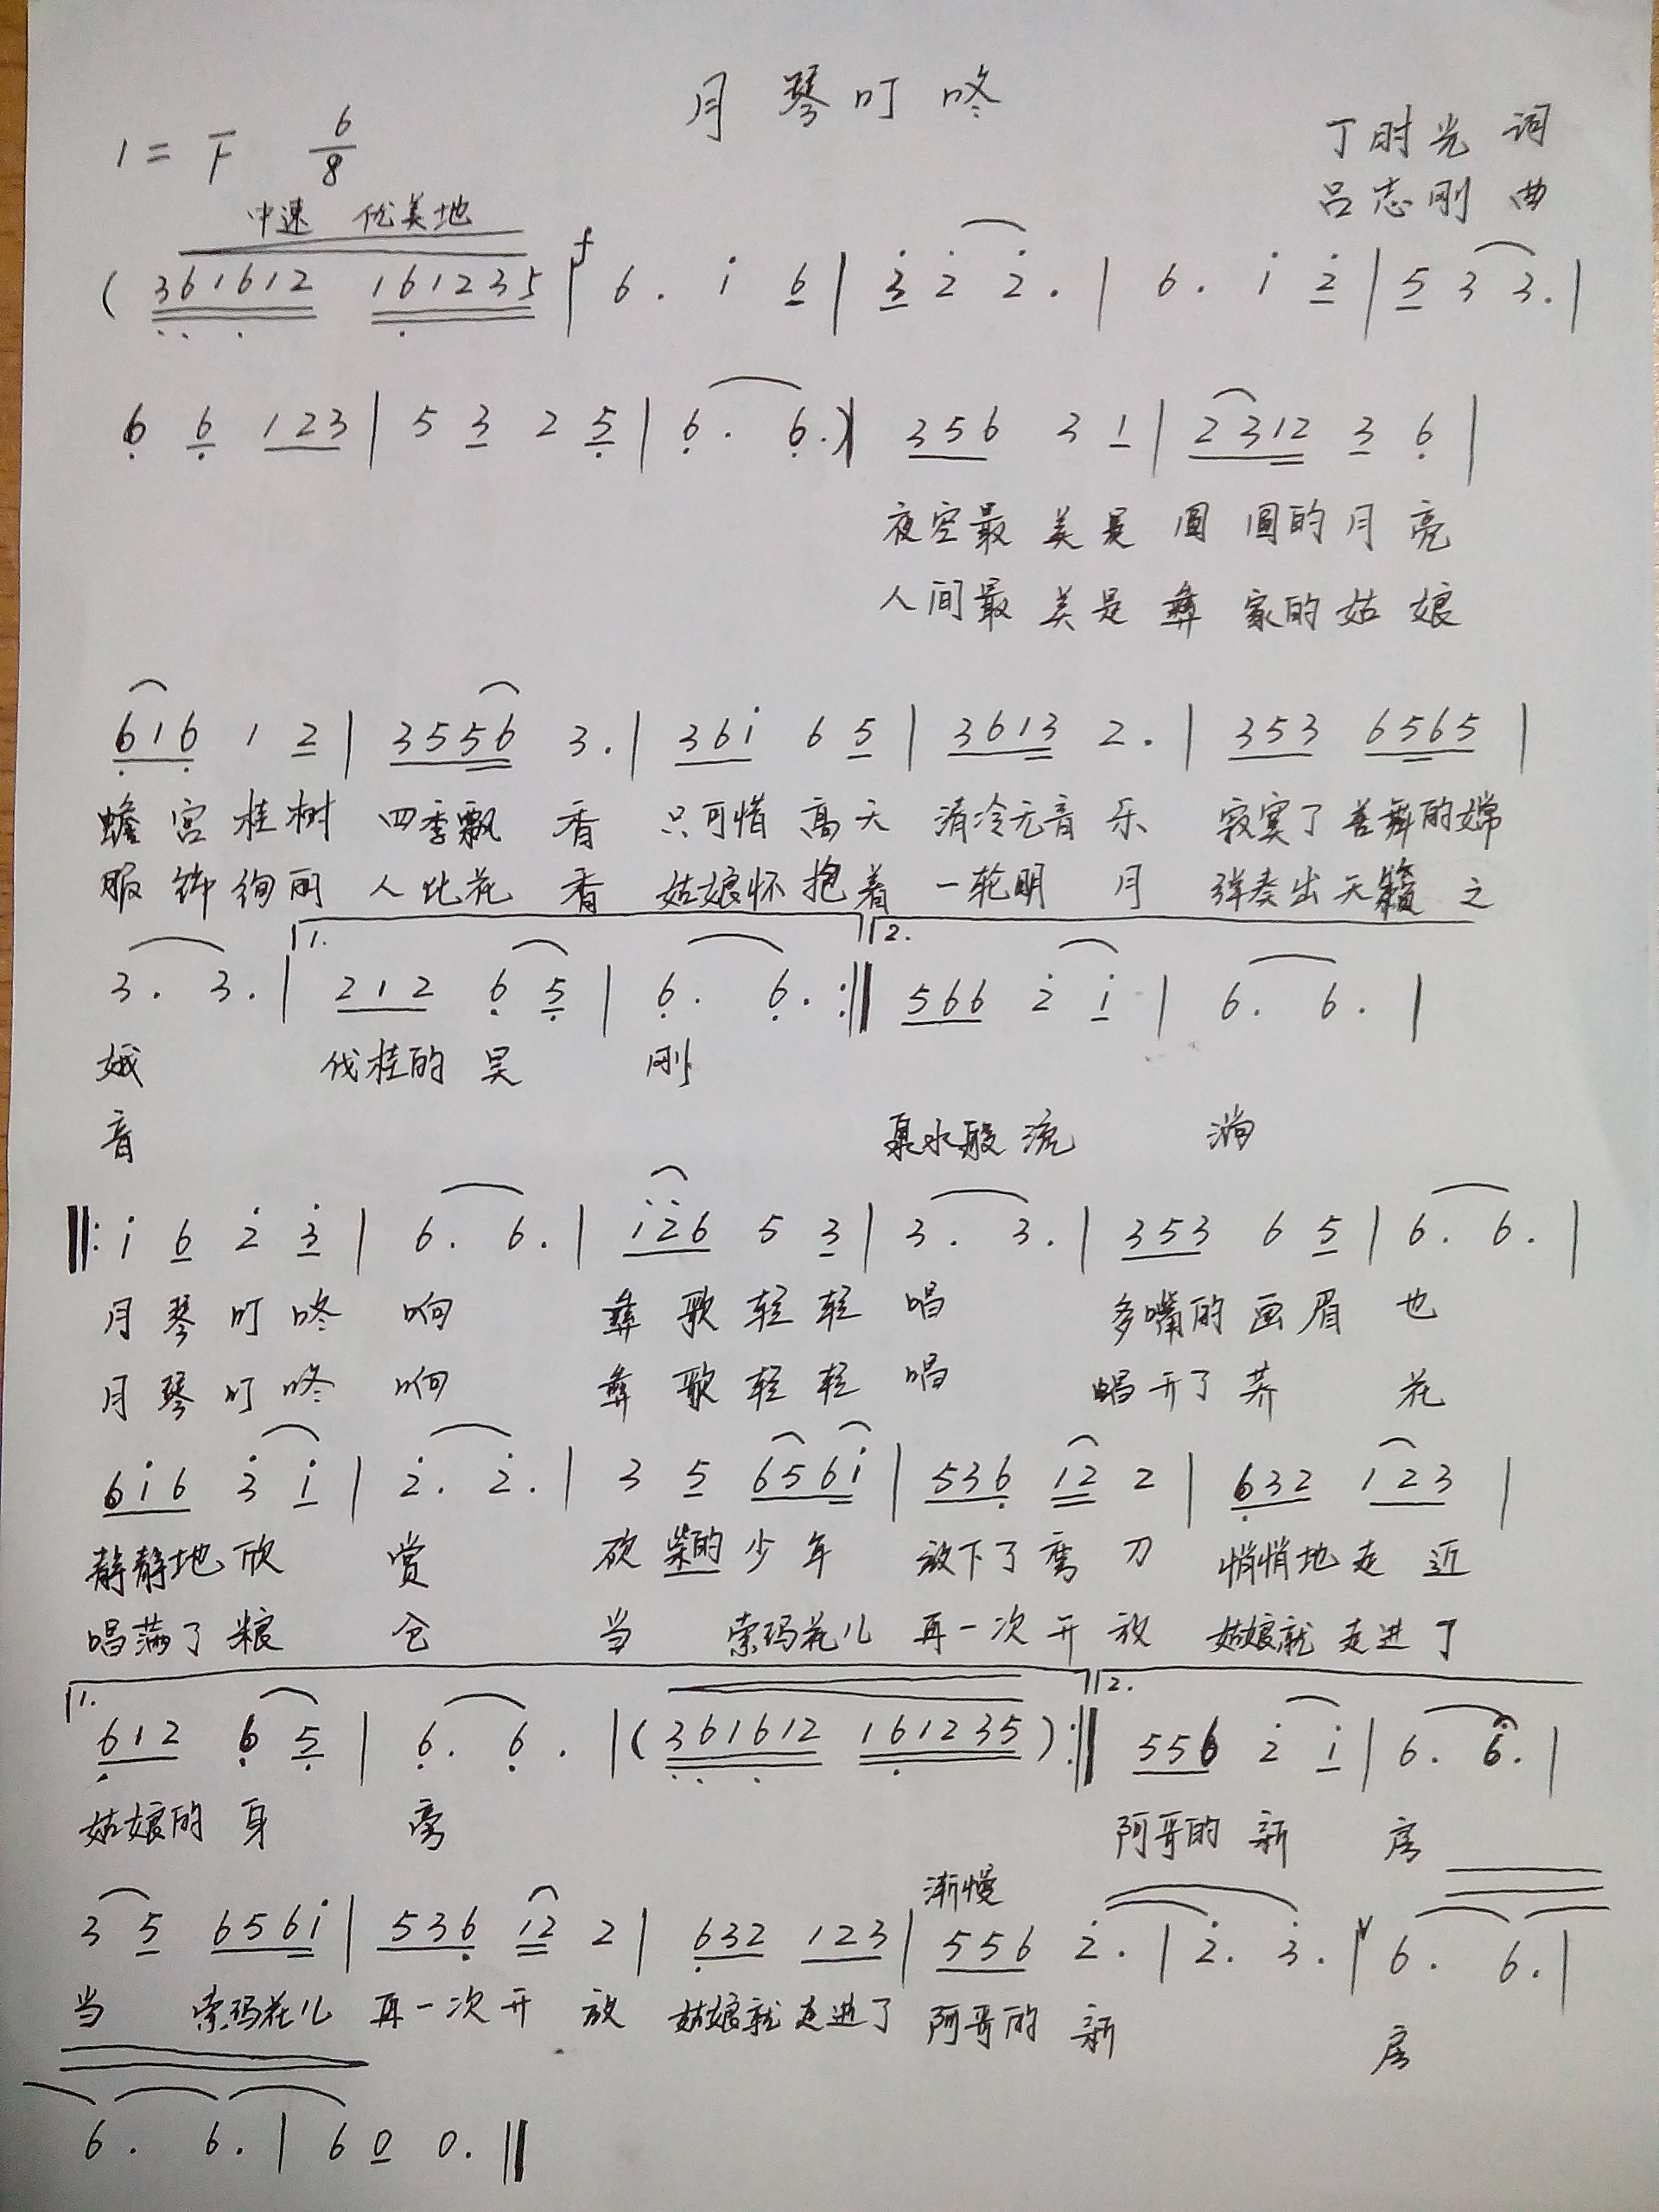 月琴叮咚
1=F 6/8
丁时光 词
中速 优美地
吕志刚 曲
f
( 361612 161235 | 6. i 6 | 3 2 2. | 6. i 2 | 5 3 3. |
6 6 123 | 5 3 2 5 | 6. 6. ) | 356 3 1 | 2312 3 6 |
夜空最 美是 圆 圆的月 亮
人间最 美是 彝 家的姑 娘
616 1 2 | 3556 3. | 36i 6 5 | 3613 2. | 353 6565 |
蟾 宫 桂树 四季飘 香 只可惜 高天 清冷无音 乐 寂寞了 善舞的嫦
服 饰 绚丽 人比花 香 姑娘怀 抱着 一轮明 月 弹奏出 天籁 之
1. 2.
3. 3. | 212 6 5 | 6. 6. :‖ 566 2 i | 6. 6. |
娥 伐桂的 吴 刚
音 泉水般 流 淌
‖: i 6 2 3 | 6. 6. | i26 5 3 | 3. 3. | 353 6 5 | 6. 6. |
月 琴 叮 咚 响 彝 歌 轻 轻 唱 多嘴的 画 眉 也
月 琴 叮 咚 响 彝 歌 轻 轻 唱 唱开了 荞 花
6i6 3 i | 2. 2. | 3 5 656i | 536 12 2 | 632 123 |
静静地 欣 赏 砍 柴的 少 年 放下了 弯 刀 悄悄地 走 近
唱满了 粮 仓 当 索玛花儿 再一次 开 放 姑娘就 走进了
1. 2.
612 6 5 | 6. 6. | ( 361612 161235 ) :‖ 556 2 i | 6. 6. |
姑娘的 身 旁 阿哥的 新 房
渐慢
3 5 656i | 536 12 2 | 632 123 | 556 2. | 2. 3. | 6. 6. |
当 索玛花儿 再一次 开 放 姑娘就 走进了 阿哥的 新 房
6. 6. | 6 0 0. ‖